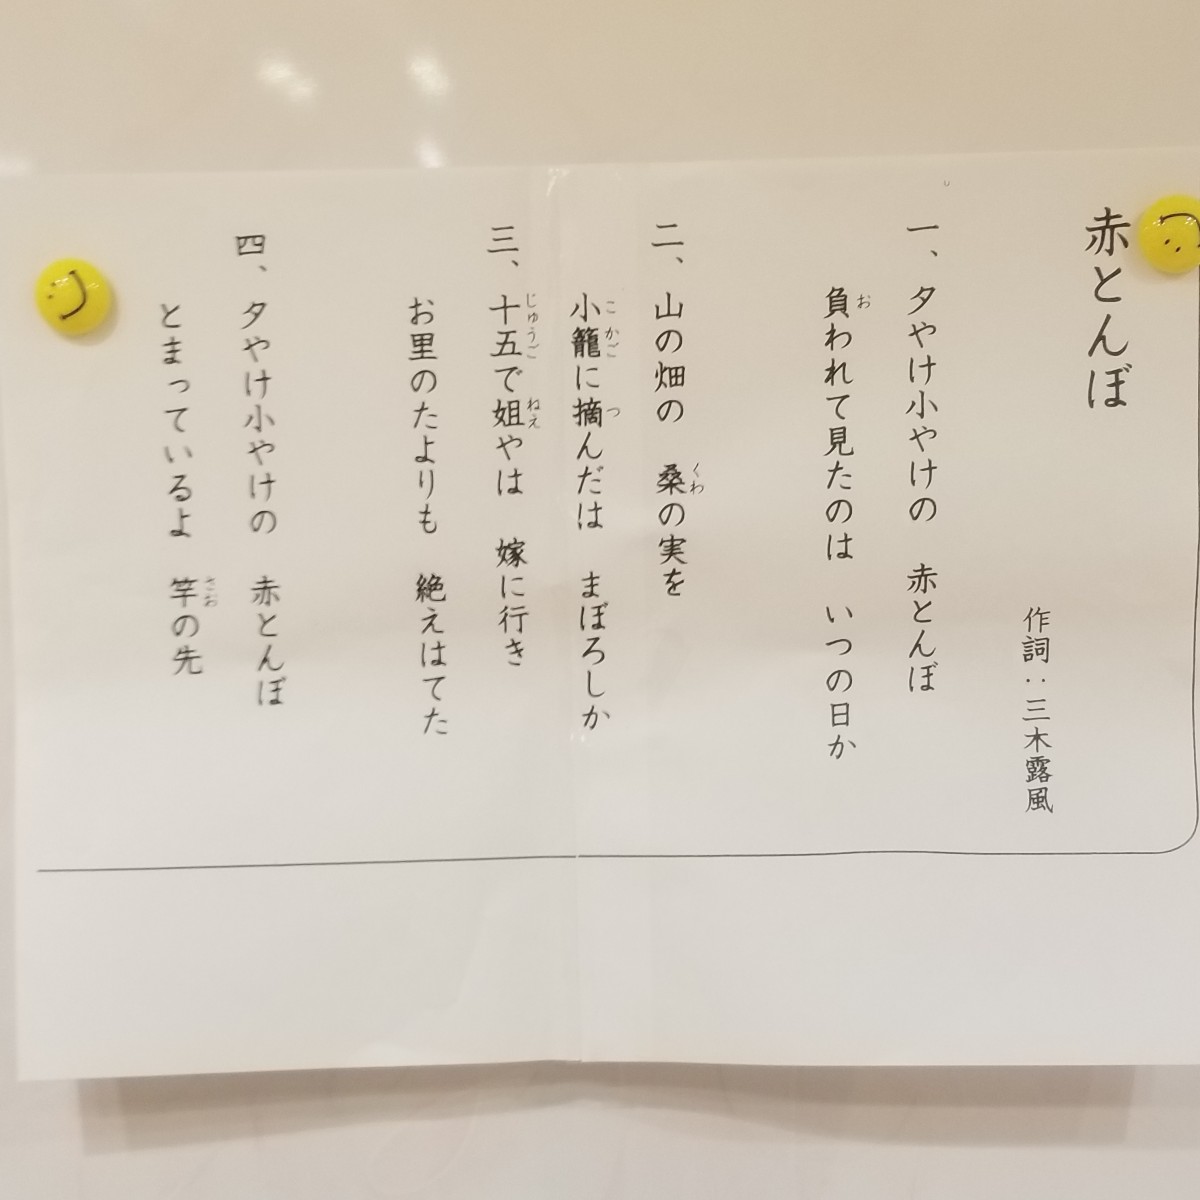 赤とんぼ
作詞：三木露風
一、夕やけ小やけの　赤とんぼ
負われて見たのは　いつの日か
二、山の畑の　桑の実を
小籠に摘んだは　まぼろしか
三、十五で姐やは　嫁に行き
お里のたよりも　絶えはてた
四、夕やけ小やけの　赤とんぼ
とまっているよ　竿の先